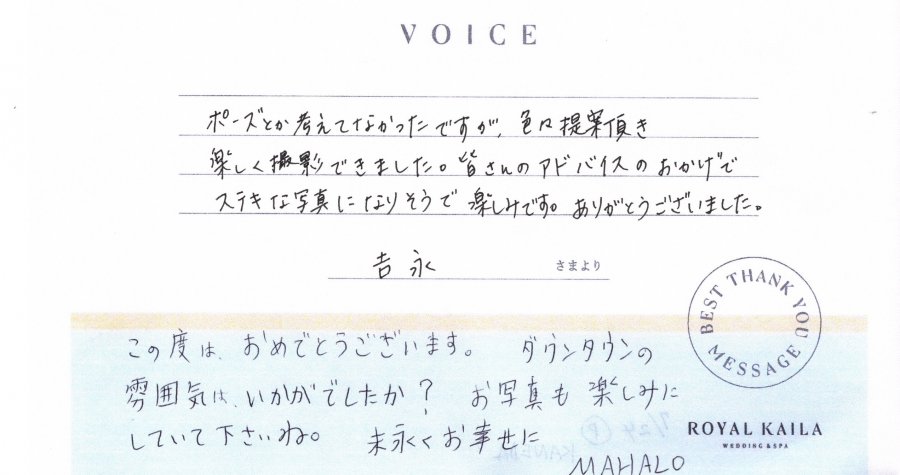 VOICE
ポーズとか考えてなかったですが、色々提案頂き
楽しく撮影できました。皆さんのアドバイスのおかげで
ステキな写真になりそうで楽しみです。ありがとうございました。
吉永 さまより
BEST THANK YOU MESSAGE
この度は、おめでとうございます。 ダウンタウンの
雰囲気は、いかがでしたか? お写真も楽しみに
していて下さいね。 末永くお幸せに
MAHALO
7/24 P
ROYAL KAILA
WEDDING & SPA